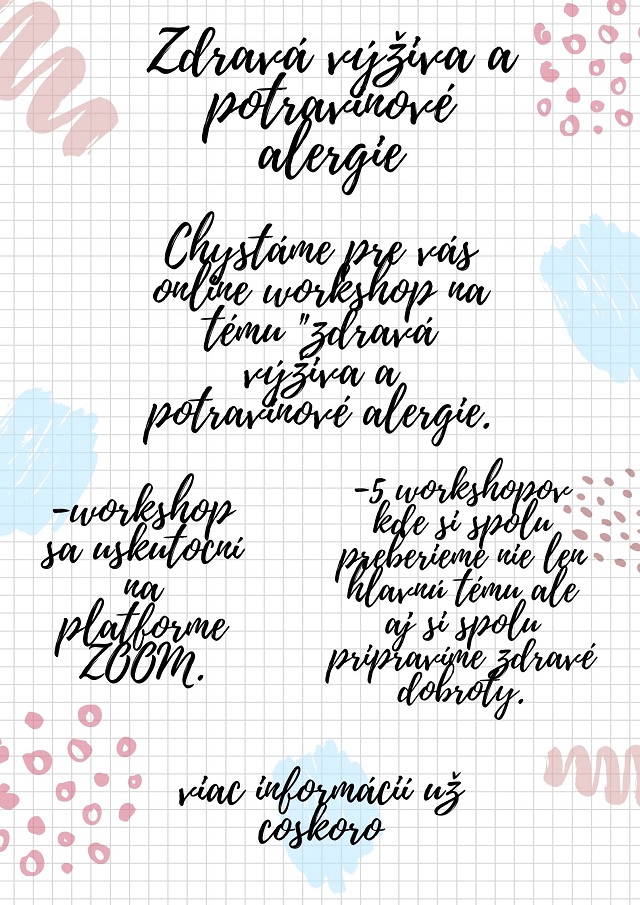 Zdravá výživa a
potravinové
alergie
Chystáme pre vás
online workshop na
tému "zdravá
výživa a
potravinové alergie.
-workshop
sa uskutocní
na
platforme
ZOOM.
-5 workshopov
kde si spolu
preberieme nie len
hlavnú tému ale
aj si spolu
pripravíme zdravé
dobroty.
viac informácií už
coskoro